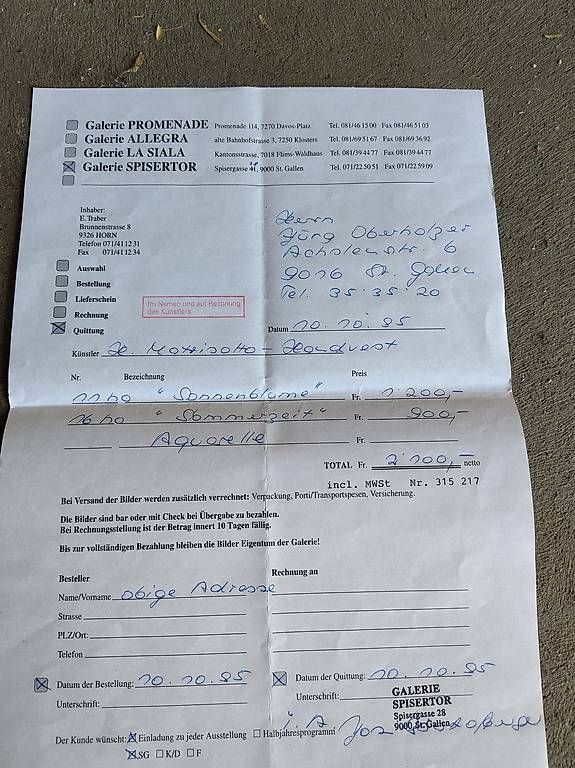 Galerie PROMENADE Promenade 114, 7270 Davos-Platz Tel. 081/46 15 00 Fax 081/46 51 03
Galerie ALLEGRA alte Bahnhofstrasse 3, 7250 Klosters Tel. 081/69 51 67 Fax 081/69 36 92
Galerie LA SIALA Kantonsstrasse, 7018 Flims-Waldhaus Tel. 081/39 44 77 Fax 081/39 44 77
Galerie SPISERTOR Spisergasse 9000 St. Gallen Tel. 071/22 50 51 Fax 071/22 59 09
Inhaber:
E. Traber
Brunnenstrasse 8
9326 HORN
Telefon 071/41 12 31
Fax 071/41 12 34
Herrn
Jürg Oberholzer
Achslenstr. 6
9016 St. Gallen
Tel. 35 35 20
Auswahl
Bestellung
Lieferschein
Rechnung
Quittung
Im Namen und auf Rechnung
des Künstlers
Datum 10. 10. 95
Künstler H. Matrisotto-Handvest
Nr. Bezeichnung Preis
11 ho "Sonnenblume" Fr. 1'200,-
16 ho "Sommerzeit" Fr. 900,-
Aquarelle Fr.
TOTAL Fr. 2'100,- netto
incl. MWSt Nr. 315 217
Bei Versand der Bilder werden zusätzlich verrechnet: Verpackung, Porti/Transportspesen, Versicherung.
Die Bilder sind bar oder mit Check bei Übergabe zu bezahlen.
Bei Rechnungsstellung ist der Betrag innert 10 Tagen fällig.
Bis zur vollständigen Bezahlung bleiben die Bilder Eigentum der Galerie!
Besteller Rechnung an
Name/Vorname obige Adresse
Strasse
PLZ/Ort:
Telefon
Datum der Bestellung: 10. 10. 95 Datum der Quittung: 10. 10. 95
Unterschrift: Unterschrift:
GALERIE
SPISERTOR
Spisergasse 28
9000 St. Gallen
i. A.
Der Kunde wünscht: Einladung zu jeder Ausstellung Halbjahresprogramm
SG K/D F